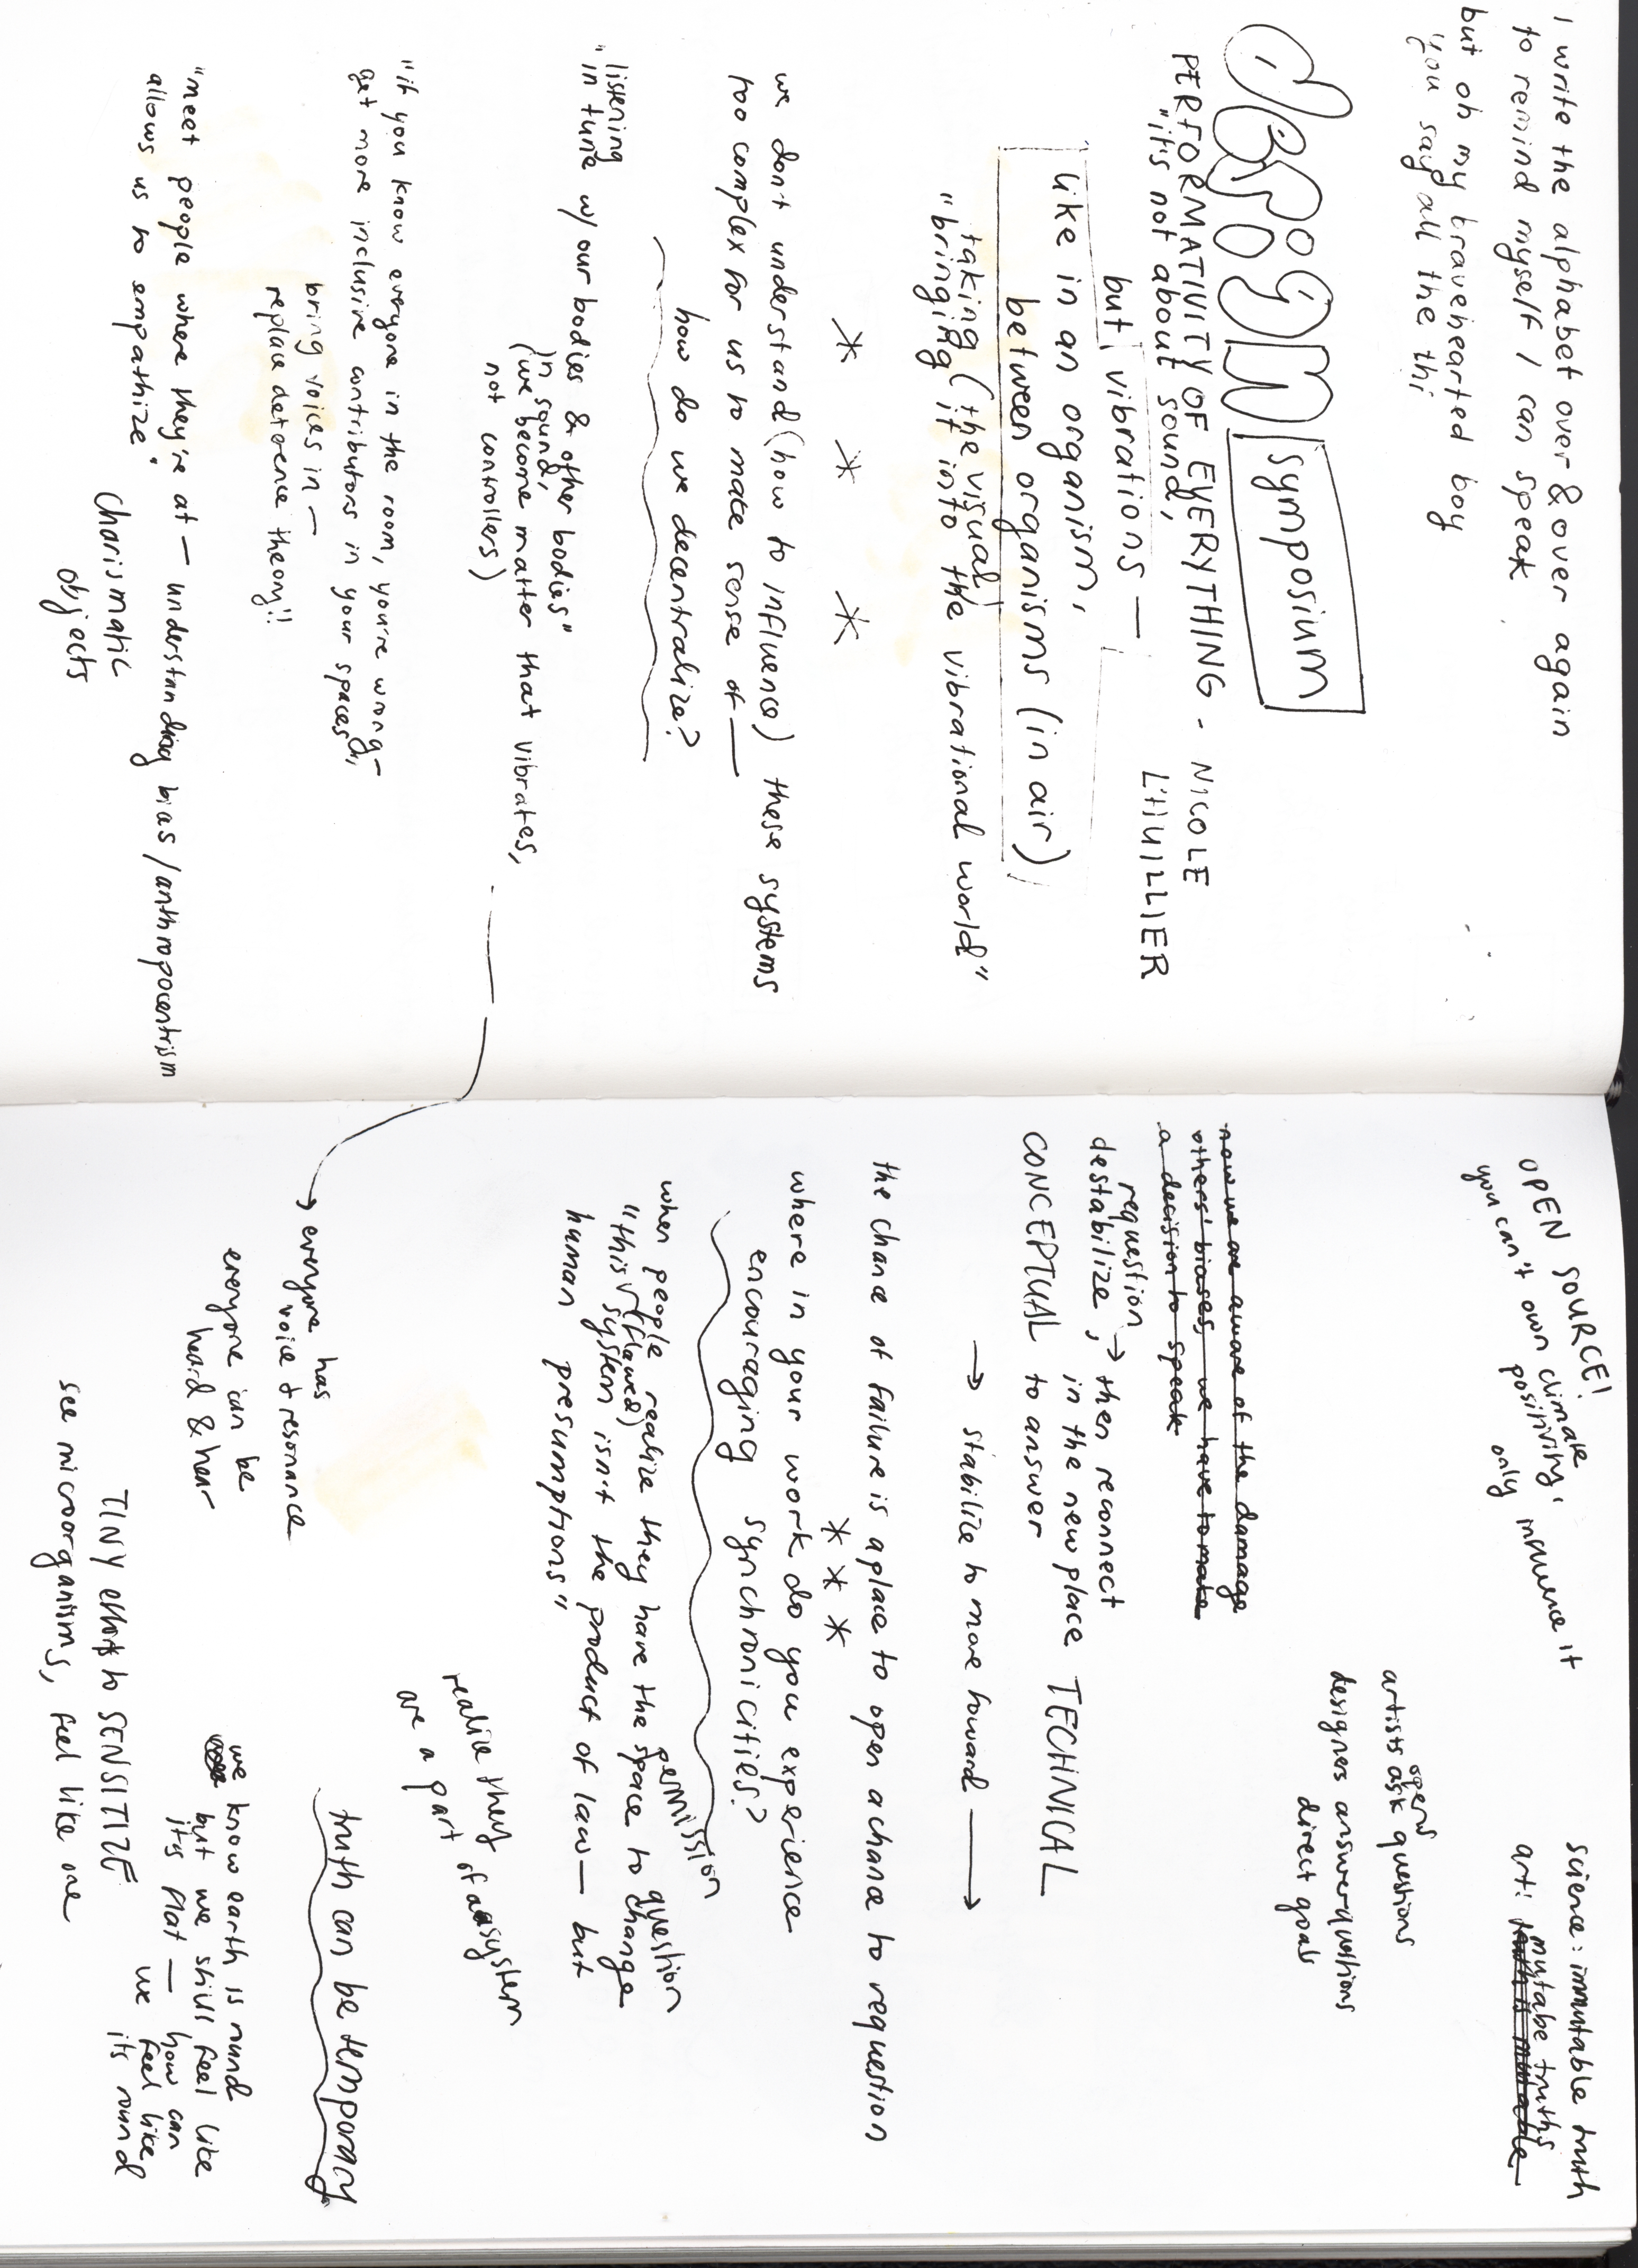 I write the alphabet over & over again
to remind myself I can speak.
but oh my bravehearted boy
"you say all the thi
symposium
PERFORMATIVITY OF EVERYTHING - NICOLE
L'HUILLIER
"it's not about sound,
but vibrations —
like in an organism,
between organisms (in air)
taking (the visual)
"bringing it into the vibrational world"
* * *
we don't understand (how to influence) these systems
too complex for us to make sense of —
how do we decentralize?
listening
"in tune w/ our bodies & other bodies"
in sound,
(we become matter that vibrates,
not controllers)
"if you know everyone in the room, you're wrong —
get more inclusive contributors in your spaces,
bring voices in —
replace deterence theory!!
"meet people where they're at — understanding bias / anthropocentrism
allows us to empathize"
charismatic
objects
OPEN SOURCE!
you can't own climate
positivity,
only
science: immutable truth
art: mutabe truths
truth is mutable
open
artists ask questions
designers answer questions
direct goals
now we are aware of the damage
others' biases, we have to make
a decision to speak
requestion
destabilize, → then reconnect
in the new place TECHNICAL
CONCEPTUAL to answer
→ stabilize to move forward →
the chance of failure is a place to open a chance to requestion
* * *
where in your work do you experience
encouraging synchronicities?
permission
question
when people realize they have the space to change
"this (flawed) system isn't the product of law — but
human presumptions"
realize they
are a part of a system
→ everyone has
voice & resonance
everyone can be
heard & hear
truth can be temporary
we know earth is round
but we still feel like
it's flat — how can
we feel like
its round
TINY efforts to SENSITIZE
see microorganisms, feel like one